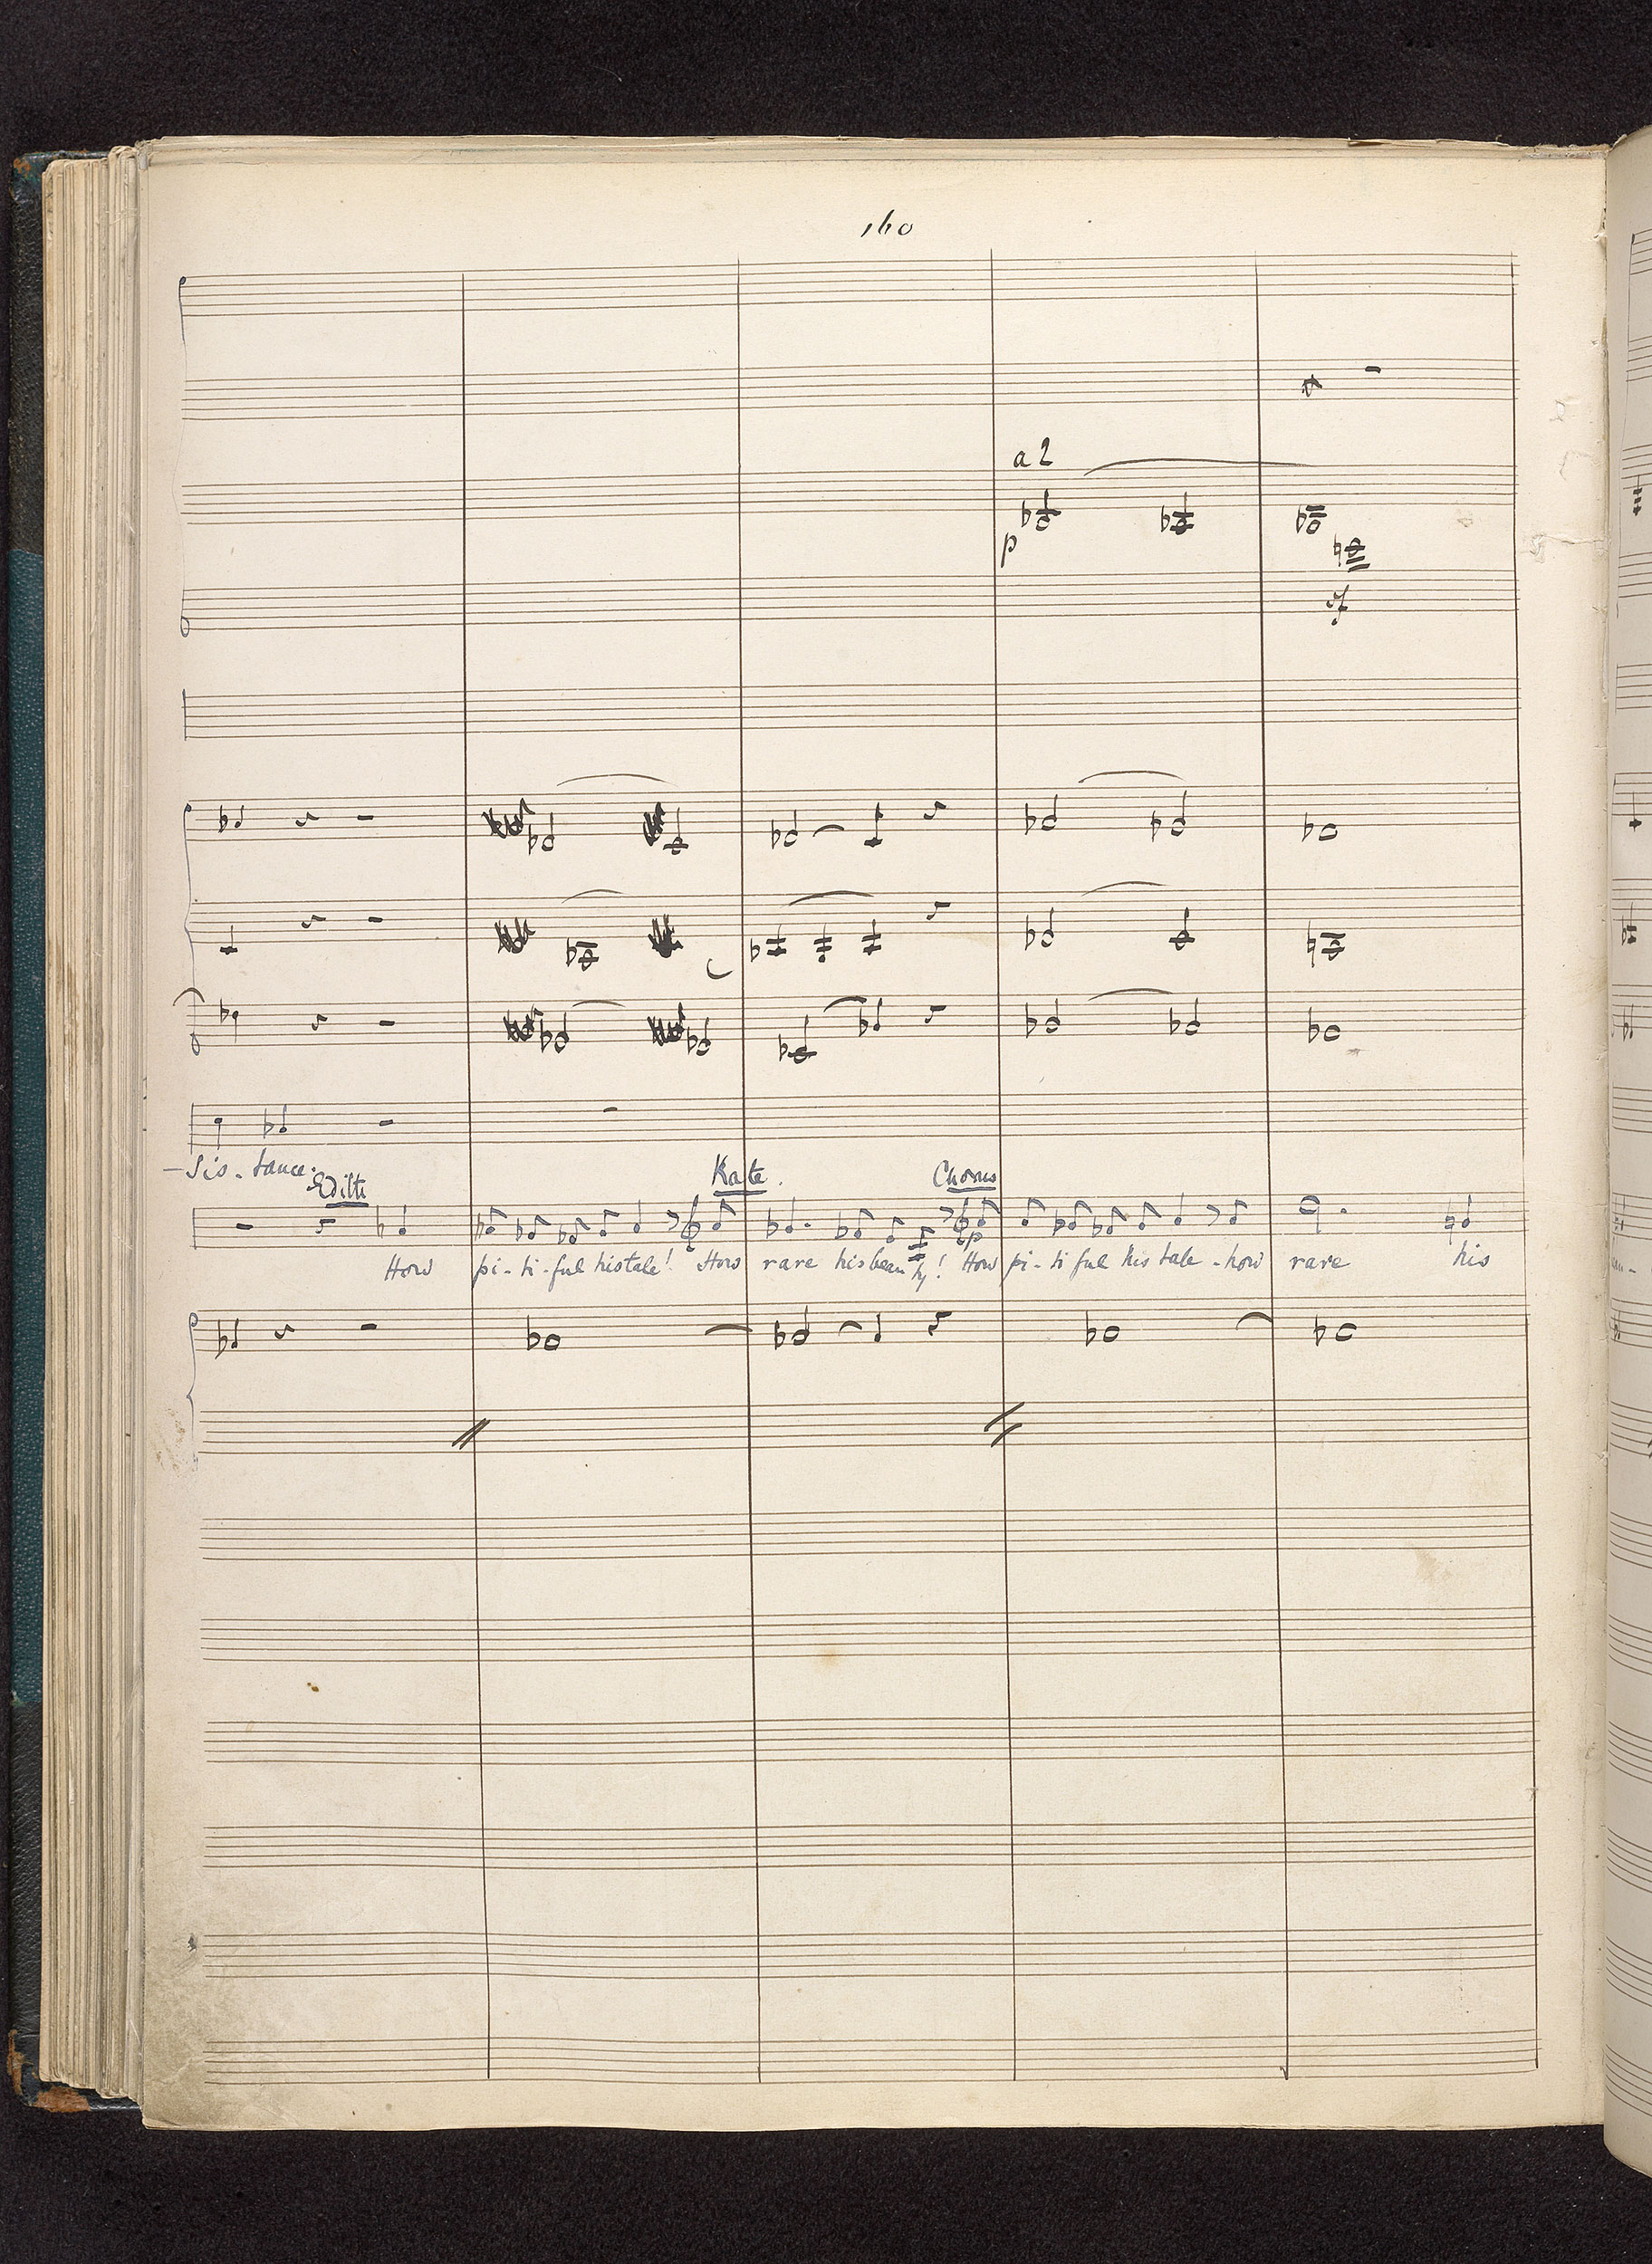 160
a 2
p
sf
- sis - tance.
Edith
Kate.
Chorus
p
How pi - ti - ful his tale! How rare his beau ty! How pi - ti ful his tale - how rare his